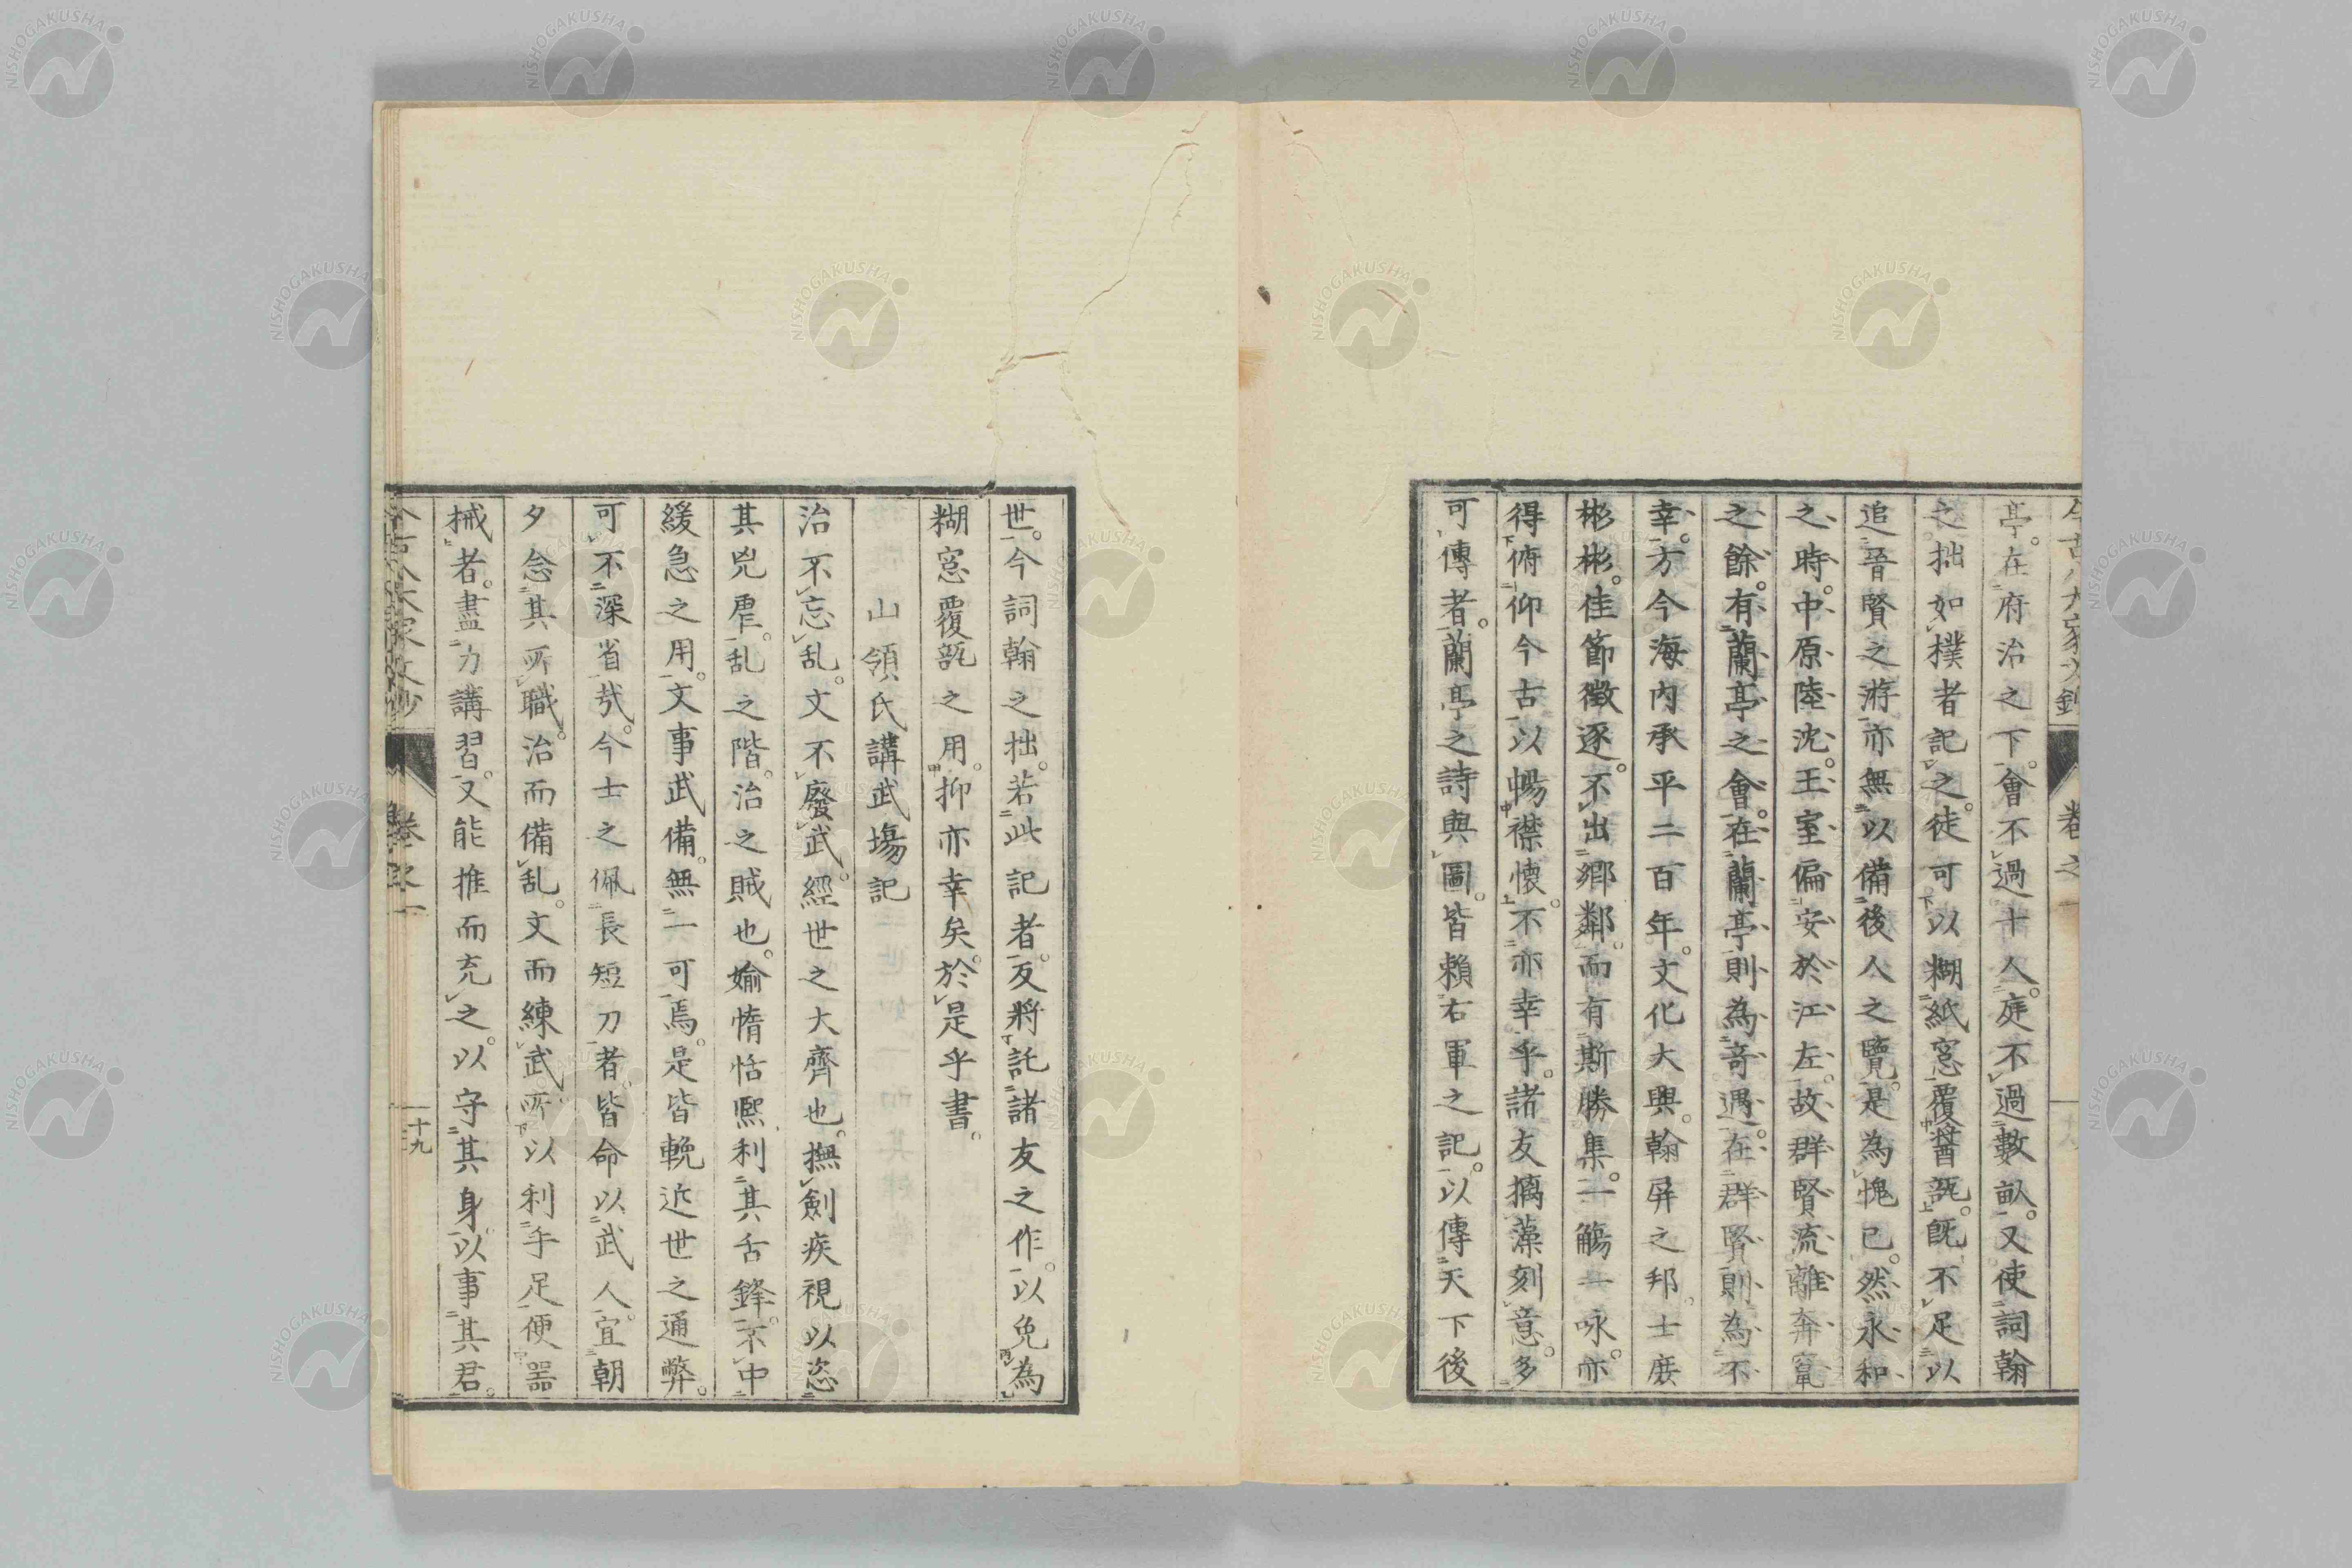 亭在府治之下。會不過十人。庭不過數畝。又使詞翰
之拙如樸者記之。徒可以糊紙窓覆醬瓿。既不足以
追晉賢之游亦無以備後人之覽。是為愧已。然永和
之時。中原陸沈。王室偏安於江左。故群賢流離奔竄
之餘。有蘭亭之會。在蘭亭則為奇遇。在群賢則為不
幸。方今海内承平二百年。文化大興。翰屏之邦。士庶
彬彬。佳節徵逐。不出鄉鄰。而有斯勝集。一觴一咏。亦
得俯仰今古以暢襟懷。不亦幸乎。諸友摛藻刻意。多
可傳者。蘭亭之詩與圖。皆賴右軍之記。以傳天下後
世。今詞翰之拙。若此記者。反將託諸友之作。以免為
糊窓覆瓿之用。抑亦幸矣。於是乎書。
山領氏講武場記
治不忘乱。文不廢武。經世之大齊也。撫劍疾視以恣
其兇虐。乱之階。治之賊也。媮惰恬熙利其舌鋒。不中
緩急之用。文事武備。無一可焉。是皆輓近世之通弊。
可不深省哉。今士之佩長短刀者皆命以武人。宜朝
夕念其所職。治而備乱。文而練武。所以利手足便器
械者。盡力講習。又能推而充之。以守其身。以事其君。
今古八大家文鈔
卷之一
十九
NISHOGAKUSHA